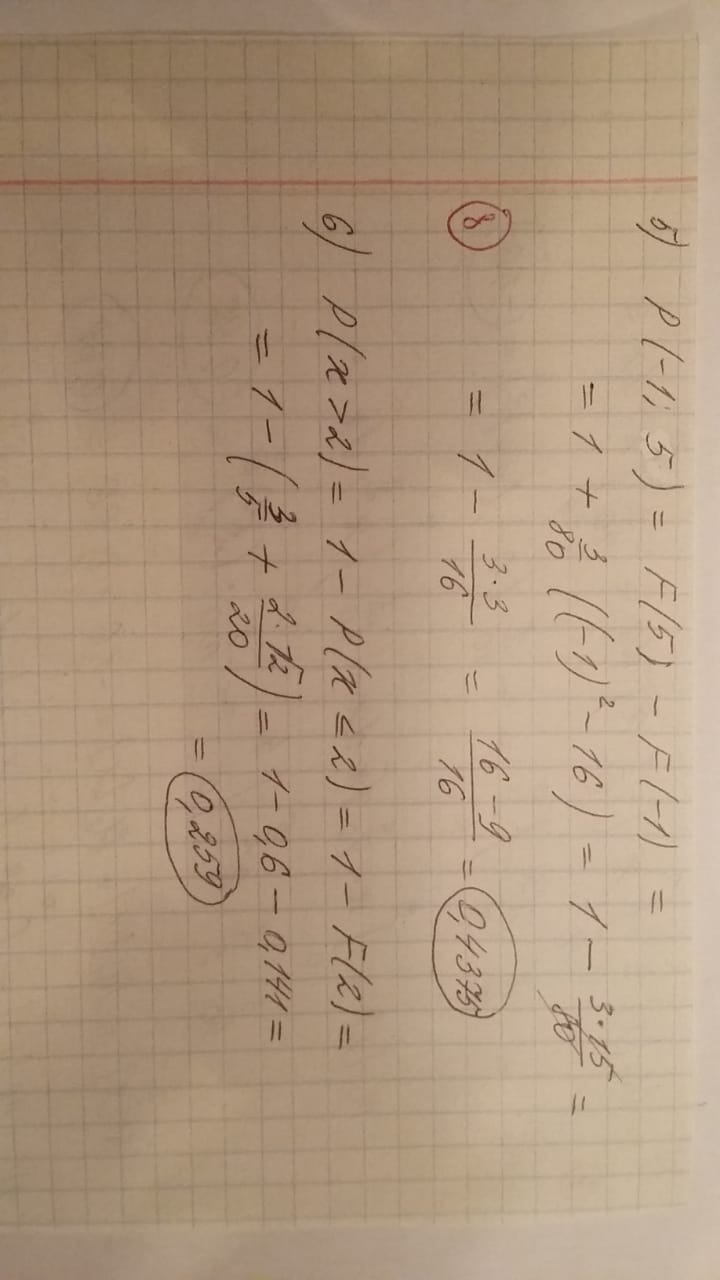 5) P(-1; 5) = F(5) - F(-1) =
= 1 + 3/80 ((-1)² - 16) = 1 - 3·15/80 =
8 = 1 - 3·3/16 = 16-9/16 = 0,4375
6) P(x>2) = 1 - P(x ≤ 2) = 1 - F(2) =
= 1 - (3/5 + 2·√2/20) = 1 - 0,6 - 0,141 =
= 0,259